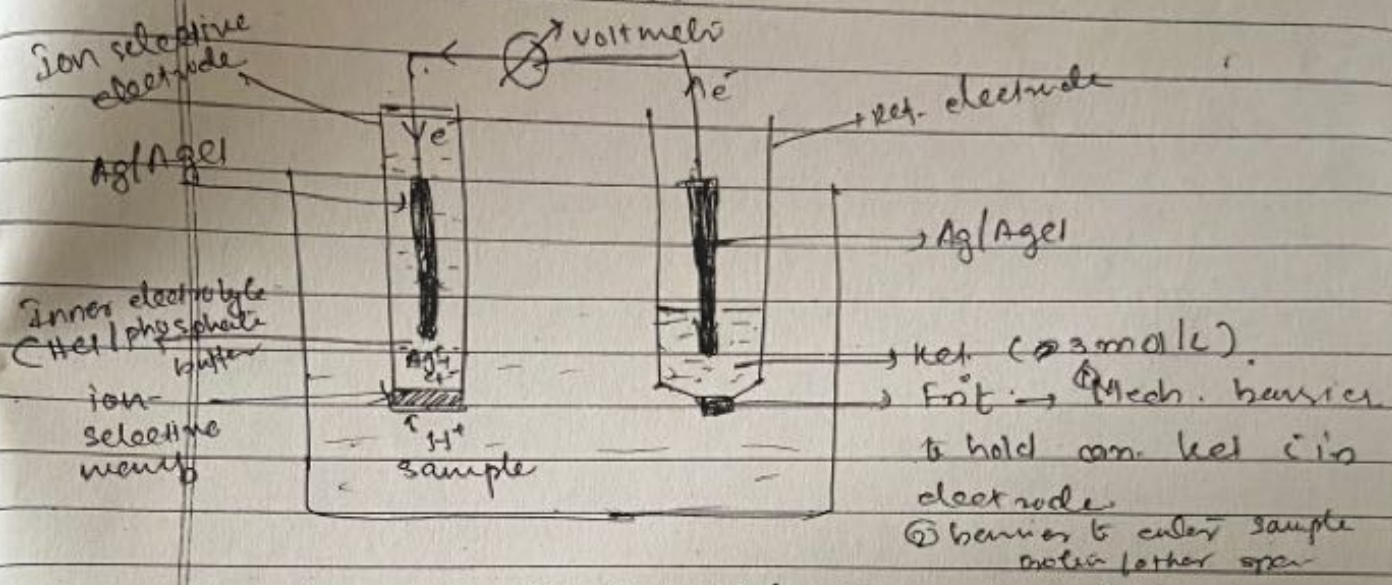 Ion selective
electrode
voltmeter
e-
Ref. electrode
Ag/AgCl
e-
Ag/AgCl
Inner electrolyte
(HCl/phosphate
buffer
AgCl
Cl-
ion-
selective
memb
H+
sample
KCl (3 mol/L).
Frit → ① Mech. barrier
to hold KCl in
electrode
② barrier to enter sample
protein / other